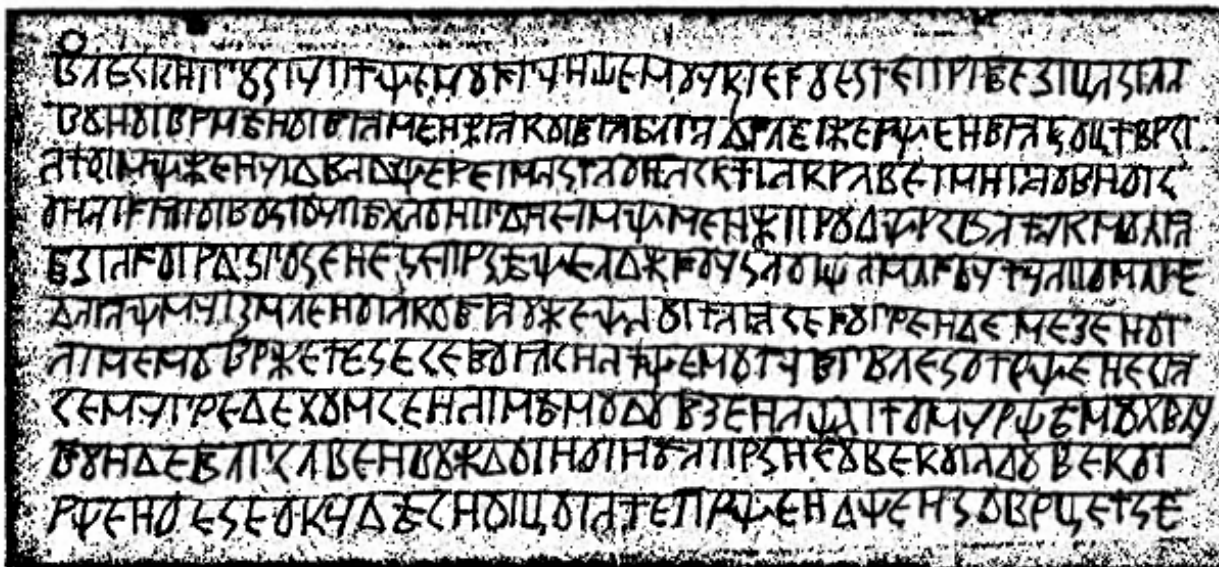 ВЛЕСКНІГУСІУПТЩЕМОКГУНШЕМОУКІЕБОЕСТЕПРІБЕЗІЦАСІЛА
ВОНОІВРМЕНОІБЯМЕНЖЯКОІБЯБЛГАДБЛЕІЖЕРЩЕНБЯКОЦТВРСІ
АТОІМЩЖЕНУІДВАДЩЕРЕІМАСТАОНАСКТІАКРАВЕІМНГАОВНОІС
ОНАІБЯТОІВОСТОУПЕХАОНІДНЕІМЩМЕНЖПРОДЩРСВАТАКМОЛЯ
БЗІАБОІРДЗГОСЕНЕСЕПРСЕЩЕАДЖБОУСЛОІЩАМЛБОУТУАПОМЛБЕ
ДАІАЩМУІЗМЛЕНОІАКОБЯОЖЕЩАОІТАЯСЕБОГРЕНДЕМЕЗЕНОІ
АІМЕМОВРЖЕТЕСЕСЕВОІАСНАТЩЕМОТУБГВЛЕСОТРЩЕНЕСІА
СЕМУГРЕДЕХОМСЕНАІМЬМОДОБЗЕНАЩАІТОМУРЩЕМОХВЛУ
БОНДЕБЛГСЛВЕНВОЖДОІНОІНОАПРСНЕОВЕКОІАДОВЕКОІ
РЩЕНОЕСЕОКУДЕСНОІЦОІАТЕПРЩЕНДЩЕНСОВРЦЕТСЕ